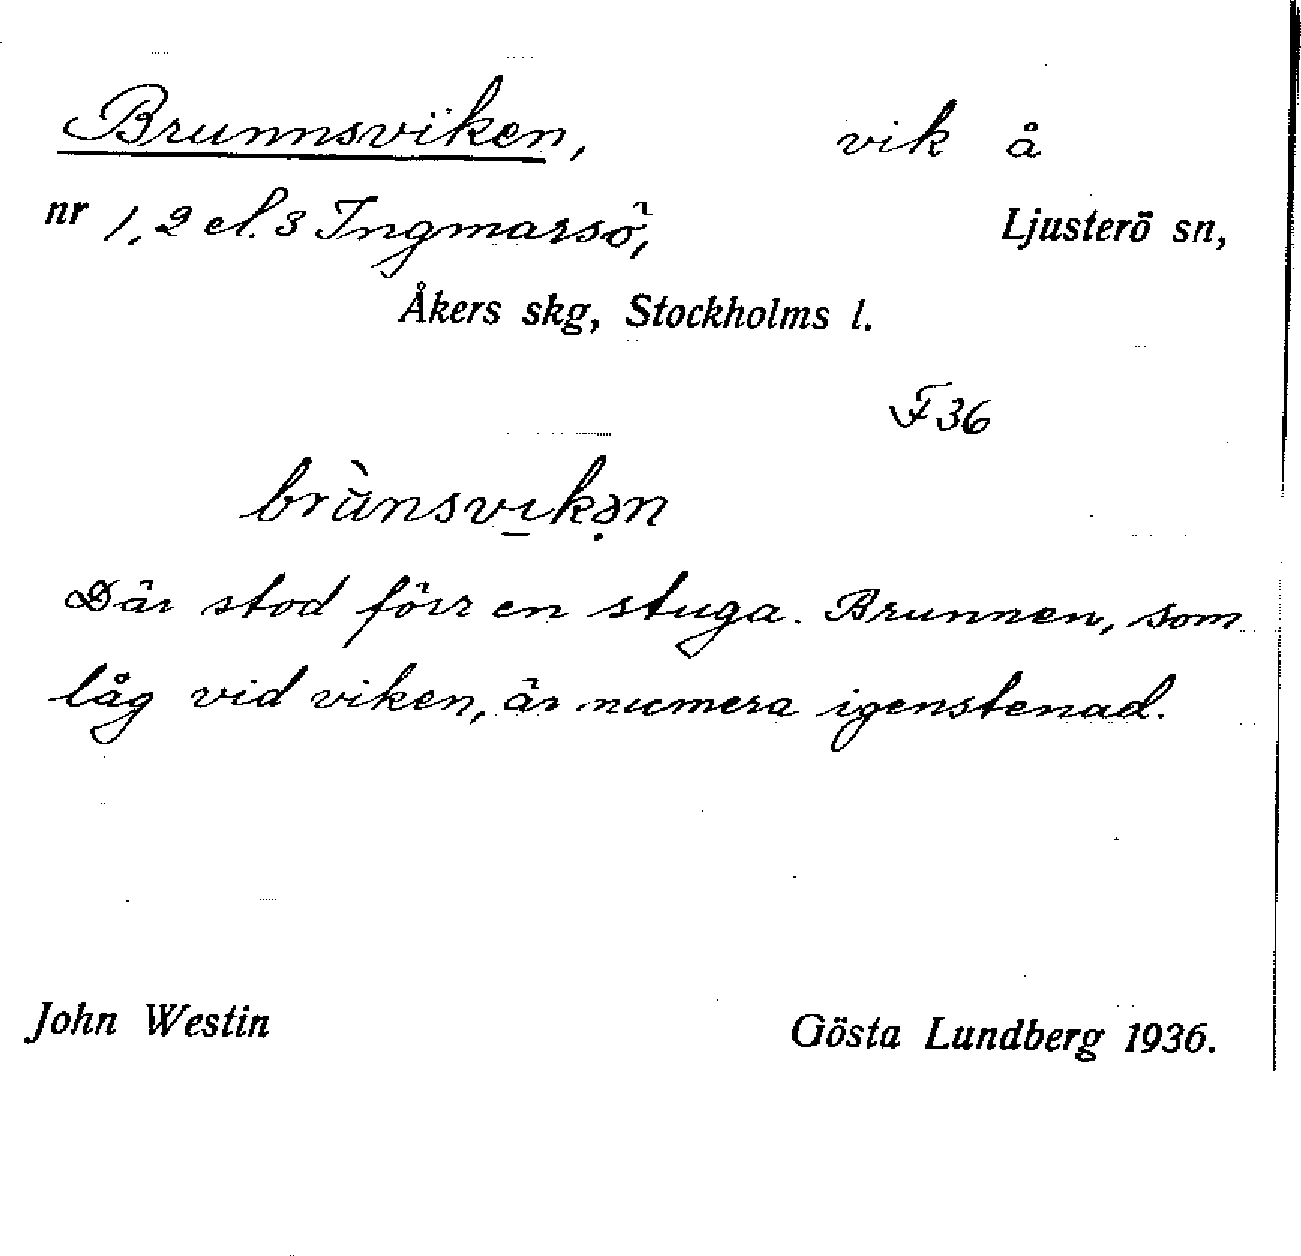 Brunnsviken, vik å
nr 1, 2 el. 3 Ingmarsö, Ljusterö sn,
Åkers skg, Stockholms l.
F 36
brùnsvıkən
Där stod förr en stuga. Brunnen, som
låg vid viken, är numera igenstenad.
John Westin Gösta Lundberg 1936.